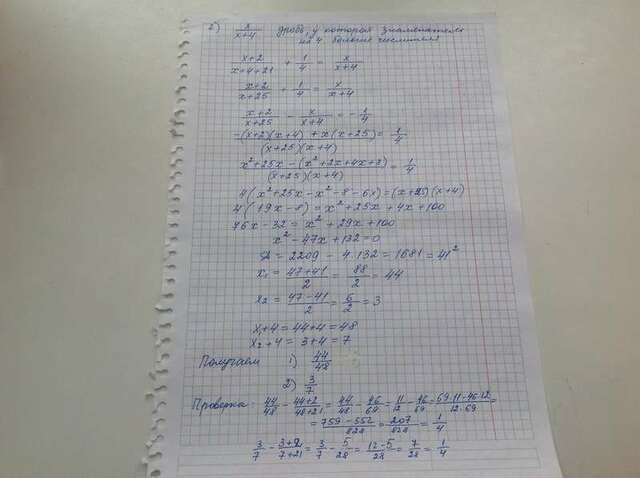 2) x/(x+4) дробь, у которой знаменатель
на 4 больше числителя
(x+2)/(x+4+21) + 1/4 = x/(x+4)
(x+2)/(x+25) + 1/4 = x/(x+4)
(x+2)/(x+25) - x/(x+4) = -1/4
(-(x+2)(x+4) + x(x+25))/((x+25)(x+4)) = 1/4
(x²+25x-(x²+2x+4x+8))/((x+25)(x+4)) = 1/4
4(x²+25x-x²-8-6x)=(x+25)(x+4)
4(19x-8)=x²+25x+4x+100
76x-32=x²+29x+100
x²-47x+132=0
D=2209-4·132=1681=41²
x₁=(47+41)/2=88/2=44
x₂=(47-41)/2=6/2=3
x₁+4=44+4=48
x₂+4=3+4=7
Получаем 1) 44/48
2) 3/7
Проверка 44/48-(44+2)/(48+21)=44/48-46/69=11/12-46/69=(69·11-46·12)/(12·69)=
=(759-552)/828=207/828=1/4
3/7-(3+2)/(7+21)=3/7-5/28=(12-5)/28=7/28=1/4